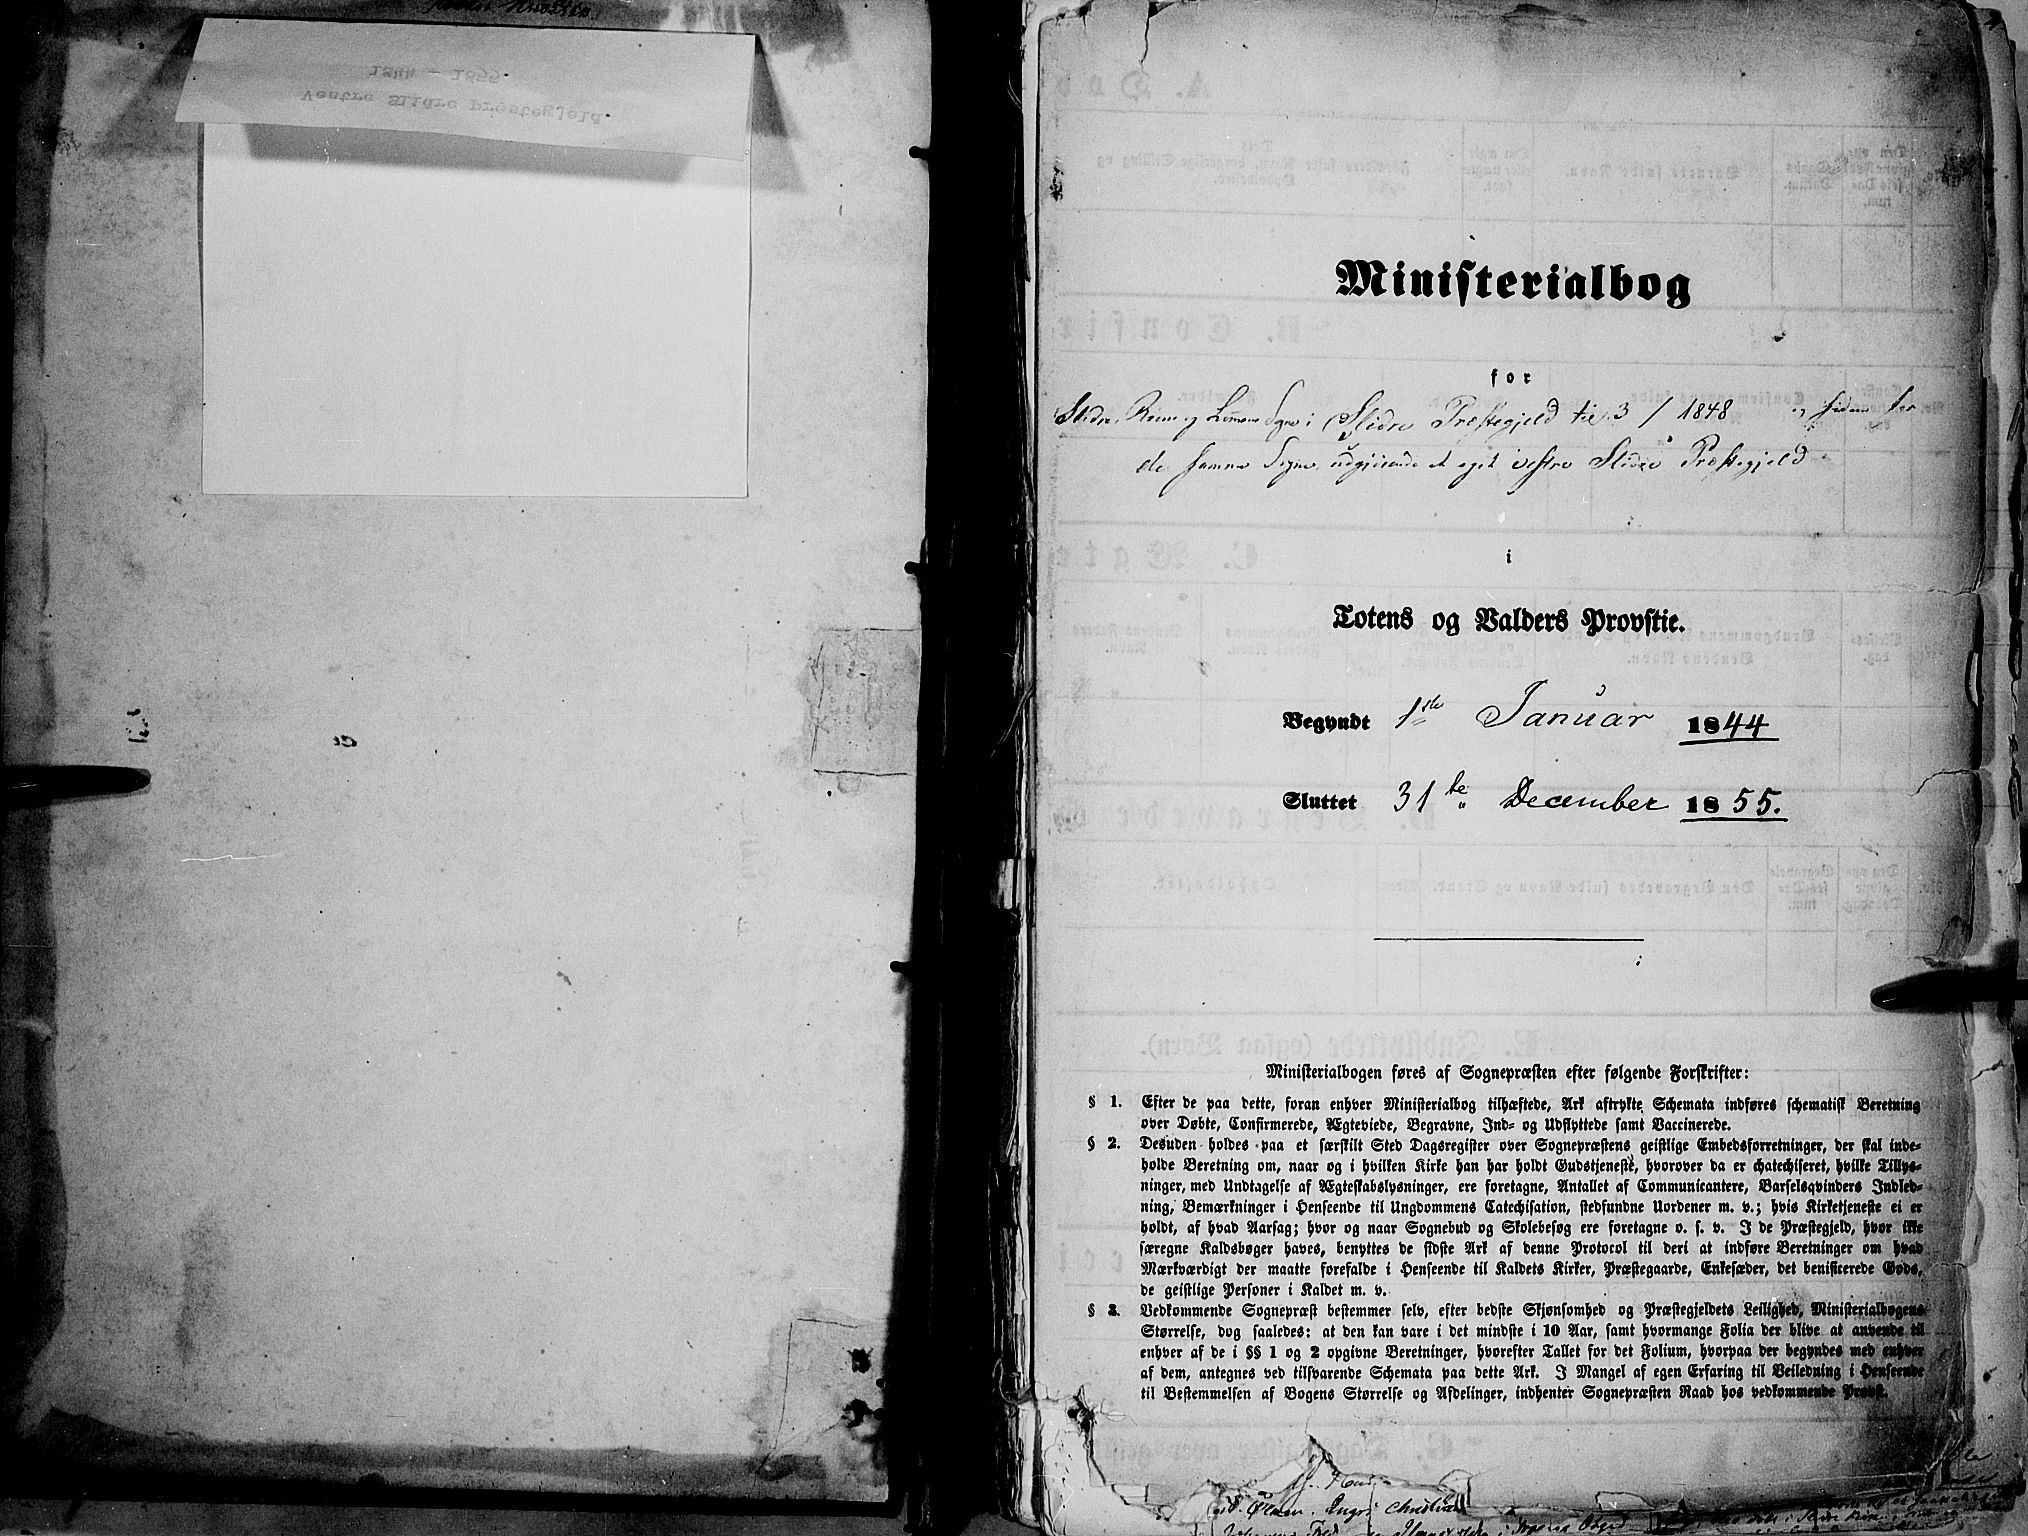 Vestre Slidre Prestegjeld.
1844 - 1855.
Ministerialbog
for
Slidre, Reine og Lomens Sogne i Slidre Præstegjeld til 3/ 1848 og siden for
de samme Sogne, udgjørende et eget vestre Slidre Præstegjeld
i
Totens og Valders Provstie.
Begyndt 1ste Januar 1844
Sluttet 31te December 1855.
Ministerialbogen føres af Sognepræsten efter følgende Forskrifter:
§ 1. Efter de paa dette, foran enhver Ministerialbog tilhæftede, Ark aftrykte Schemata indføres schematisk Beretning
over Døbte, Confirmerede, Ægteviede, Begravne, Ind- og Udflyttede samt Vaccinerede.
§ 2. Desuden holdes paa et særskilt Sted Dagsregister over Sognepræstens geistlige Embedsforretninger, der skal inde-
holde Beretning om, naar og i hvilken Kirke han har holdt Gudstjeneste, hvorover da er chatechiseret, hvilke Tillys-
ninger, med Undtagelse af Ægteskabslysninger, ere foretagne, Antallet af Communicantere, Barselsqvinders Indled-
ning, Bemærkninger i Henseende til Ungdommens Catechisation, stedfundne Uordener m. v.; hvis Kirketjeneste ei er
holdt, af hvad Aarsag; hvor og naar Sognebud og Skolebesøg ere foretagne o. s. v. I de Præstegjeld, hvor ikke
særegne Kaldsbøger haves, benyttes de sidste Ark af denne Protocol til deri at indføre Beretninger om hvad
Mærkværdigt der maatte forefalde i Henseende til Kaldets Kirker, Præstegaarde, Enkesæder, det benificerede Gods,
de geistlige Personer i Kaldet m. v.
§ 3. Vedkommende Sognepræst bestemmer selv, efter bedste Skjønsomhed og Præstegjeldets Leilighed, Ministerialbogens
Størrelse, dog saaledes: at den kan vare i det mindste i 10 Aar, samt hvormange Folia der blive at anvende til
enhver af de i §§ 1 og 2 opgivne Beretninger, hvorefter Tallet for det Folium, hvorpaa der begyndes med enhver
af dem, antegnes ved tilsvarende Schemata paa dette Ark. I Mangel af egen Erfaring til Veiledning i Henseende
til Bestemmelsen af Bogens Størrelse og Afdelinger, indhenter Sognepræsten Raad hos vedkommende Provst.